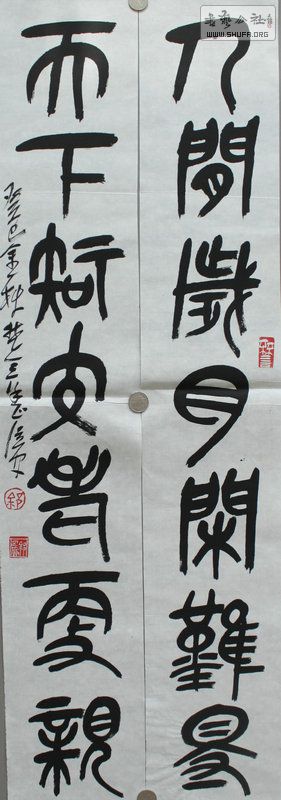 書藝公社
WWW.SHUFA.ORG
人間歲月閑難得
天下知交老更親
癸巳金秋